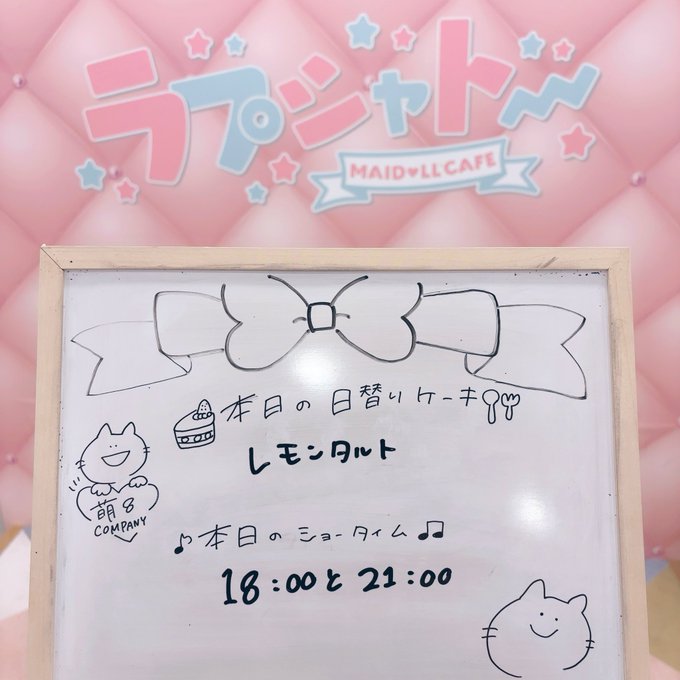 ラプシャトー
MAID♥LL CAFE
本日の日替りケーキ
レモンタルト
萌8
COMPANY
♪本日のショータイム♫
18:00と21:00